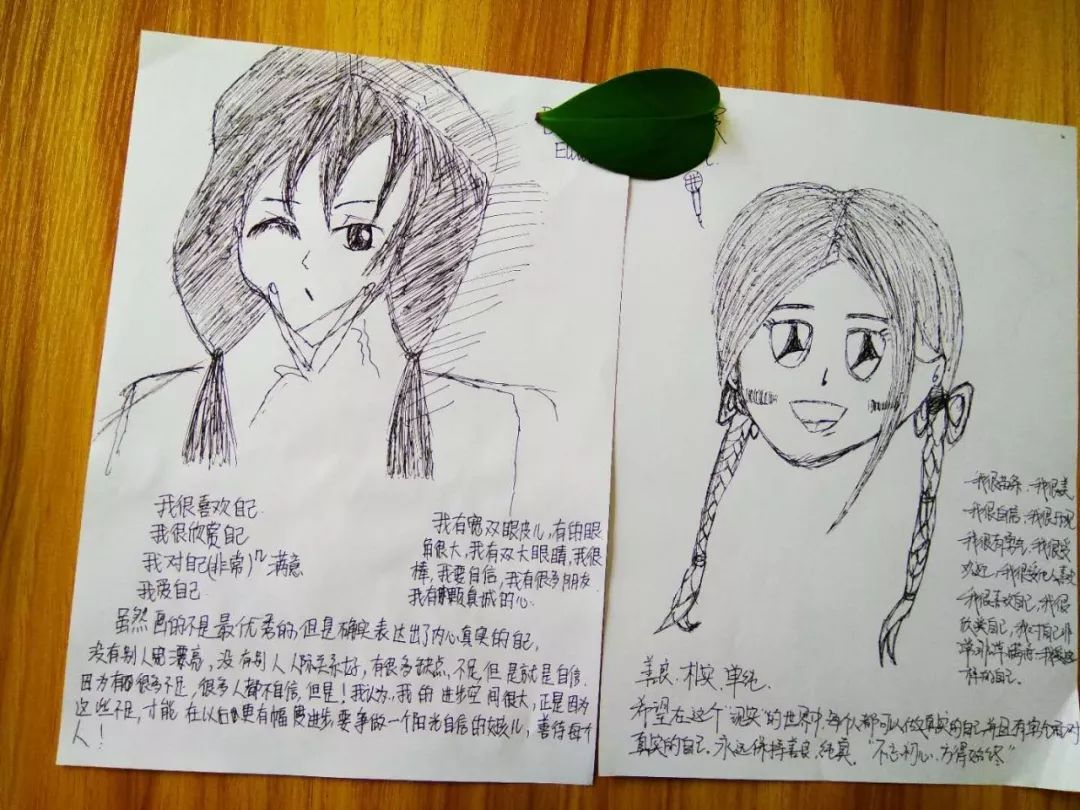 我很喜欢自己
我很欣赏自己
我对自己(非常)ⁿ满意
我爱自己
我有宽双眼皮儿,有的眼
角很大,我有双大眼睛,我很
棒,我要自信,我有很多朋友
我有颗真诚的心.
虽然画的不是最优秀的,但是确实表达出了内心真实的自己,
没有别人漂亮,没有别人人际关系好,有很多缺点、不足,但是就是自信.
因为有很多不足,很多人都不自信,但是!我认为,我的进步空间很大,正是因为
这些不足,才能在以后更有幅度进步,要争做一个阳光自信的女孩儿,善待每个
人!
我很善良、我很美
我很自信、我很乐观
我很有勇气、我很受
欢迎、我很受他人喜欢
我很喜欢自己、我很
欣赏自己,我对自己非
样的自己.
善良、朴实、单纯.
希望在这个"现实"的世界中,每个人都可以做真实的自己,并且有勇气面对
真实的自己.永远保持善良、纯真."不忘初心,方得始终"